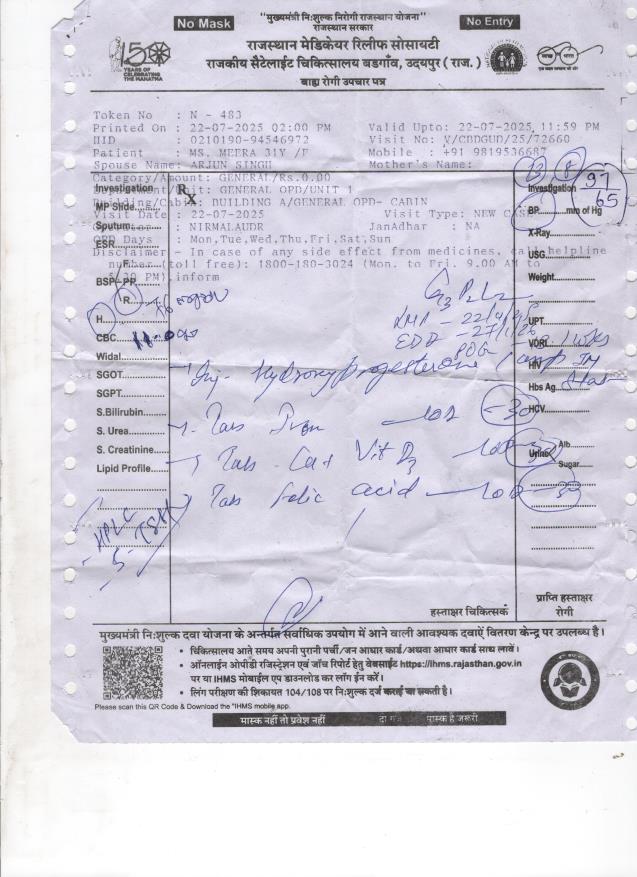 No Mask
"मुख्यमंत्री निःशुल्क निरोगी राजस्थान योजना"
No Entry
राजस्थान सरकार
राजस्थान मेडिकेयर रिलीफ सोसायटी
राजकीय सैटेलाईट चिकित्सालय बडगाँव, उदयपुर ( राज. )
बाह्य रोगी उपचार पत्र
150 YEARS OF CELEBRATING THE MAHATMA
Token No : N - 483
Printed On : 22-07-2025 02:00 PM Valid Upto: 22-07-2025, 11:59 PM
HID : 0210190-94546972 Visit No: V/CBDGUD/25/72660
Patient : MS. MEERA 31Y /F Mobile : +91 9819536687
Spouse Name: ARJUN SINGH Mother's Name:
Category/Amount: GENERAL/Rs.0.00
Investigation Rx Investigation 97/65
GENERAL OPD/UNIT 1
MP Slide BUILDING A/GENERAL OPD- CABIN BP mm of Hg
Visit Date : 22-07-2025 Visit Type: NEW CASE
Sputum : NIRMALAUDR JanAdhar : NA X-Ray
ESR
OPD Days : Mon,Tue,Wed,Thu,Fri,Sat,Sun
Disclaimer - In case of any side effect from medicines, call helpline USG
number (toll free): 1800-180-3024 (Mon. to Fri. 9.00 AM to
F. Weight
BSP PP PM) inform
R.
G3 P2L2
H. LMP - 22/4/25 UPT
CBC 11.0 EDD - 27/1/26 VDRL
POG
Widal HIV
Inj- Hydroxyprogesterone 1 amp IM Stat
SGOT Hbs Ag
SGPT
S.Bilirubin Tab Iron 1OD - 30 HCV
S. Urea Urine Alb
S. Creatinine Tab Cal Vit D3 1OD - 30 Sugar
Lipid Profile
Tab Folic acid 1OD - 30
HPLC
S. TSH
हस्ताक्षर चिकित्सक
प्राप्ति हस्ताक्षर
रोगी
मुख्यमंत्री निःशुल्क दवा योजना के अन्तर्गत सर्वाधिक उपयोग में आने वाली आवश्यक दवाऐं वितरण केन्द्र पर उपलब्ध है।
• चिकित्सालय आते समय अपनी पुरानी पर्ची/जन आधार कार्ड/अथवा आधार कार्ड साथ लावें।
• ऑनलाईन ओपीडी रजिस्ट्रेशन एवं जाँच रिपोर्ट हेतु वेबसाईट https://ihms.rajasthan.gov.in
पर या IHMS मोबाईल एप डाउनलोड कर लॉग ईन करें।
• लिंग परीक्षण की शिकायत 104/108 पर निःशुल्क दर्ज कराई जा सकती है।
Please scan this QR Code & Download the "IHMS mobile app.
मास्क नहीं तो प्रवेश नहीं मास्क है जरूरी